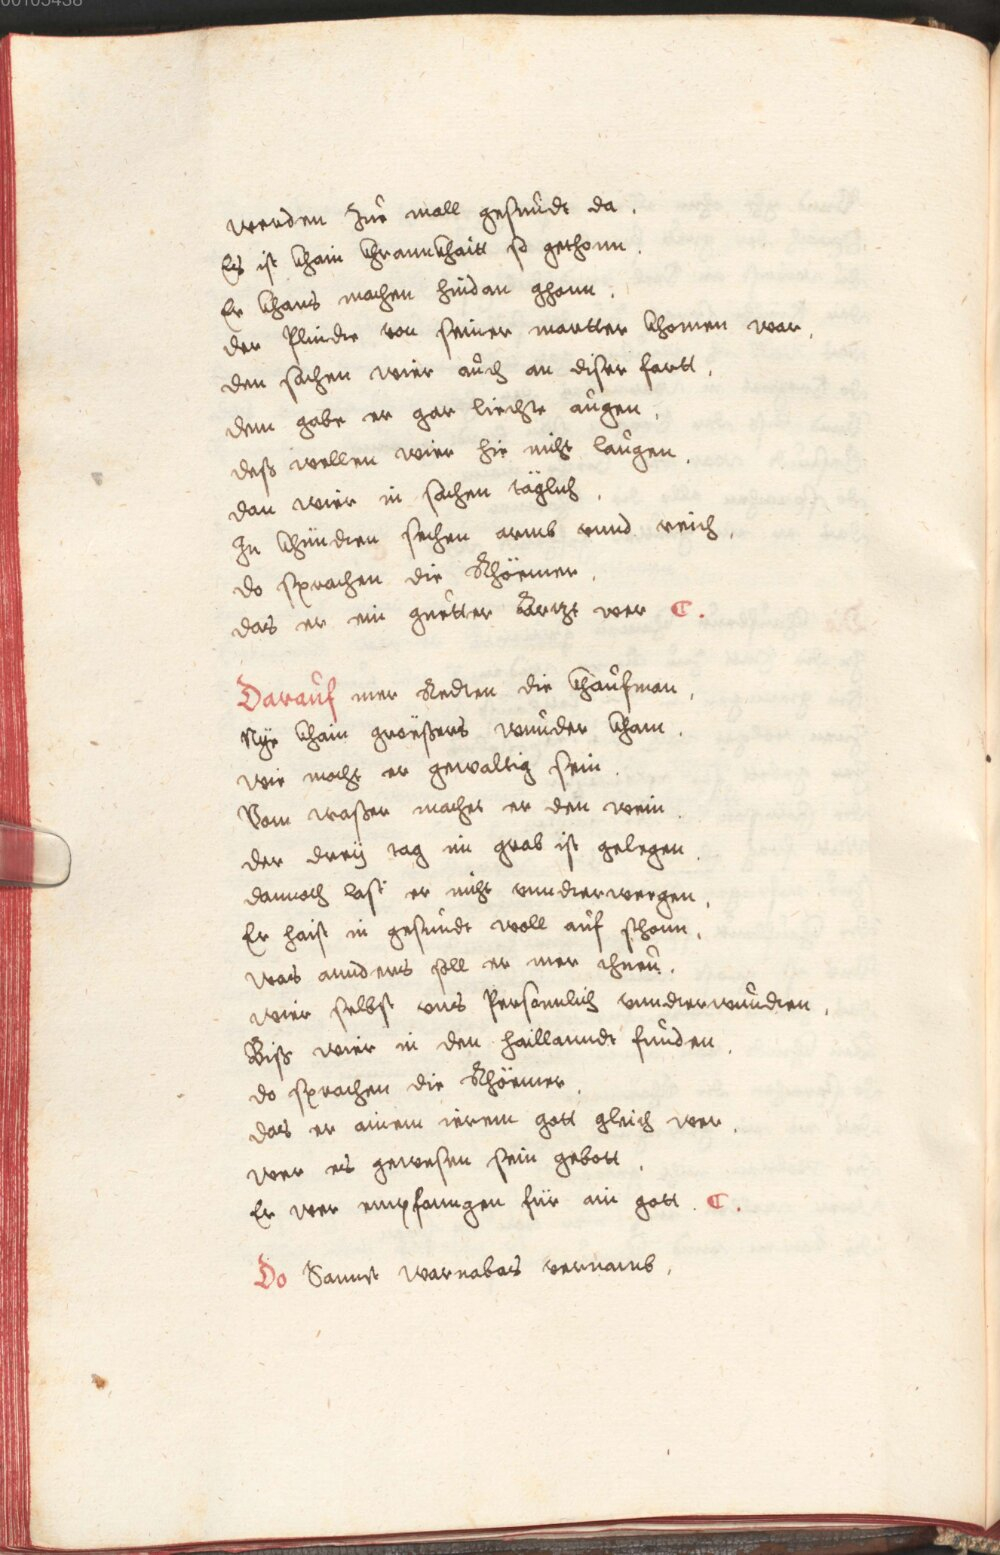 00105438
werden Zur mall gesundt da .
Es ist khain khrannkhaitt so gethonn .
Er khans machen hindan gehonn .
der Plindte von seiner martter khomen war .
den sachen wier auch an diser fartt .
dem gabe er gar liechte augen .
deß wellen wier hie nicht laugen .
dan wier in sachen täglich .
In khündten sechen armb vnnd reich .
do sprachen die Rhömer .
das er ein guetter Artzt wer C .
Darauf mer Redten die khaufman .
Nye khain größers wunder kham .
wie mocht er gewaltig sein .
Vom waßer machet er den wein .
der dreÿ tag im grab ist gelegen .
dannoch last er nicht vnnderwegen .
Er haist in gesundt woll auf sthonn .
was annders soll er mer thuen .
wier selbst vns Persönnlich vnnderwundten .
Biß wier in den haillanndt funden .
do sprachen die Rhömer .
das er ainem irem gott gleich wer .
wer es gewesen sein gebott .
Er wer empfanngen für ain gott . C .
Do Sannct warnabas vernamb .